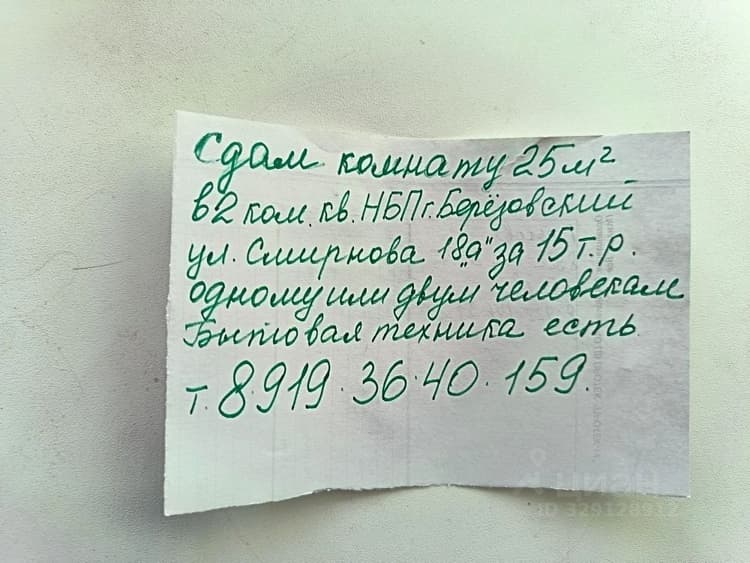 Сдам комнату 25 м²
в 2 ком. кв. НБП г. Берёзовский
ул. Смирнова 18 "а" за 15 т.р.
одному или двум человекам
Бытовая техника есть
т. 8.919.36.40.159.
ID 329128912